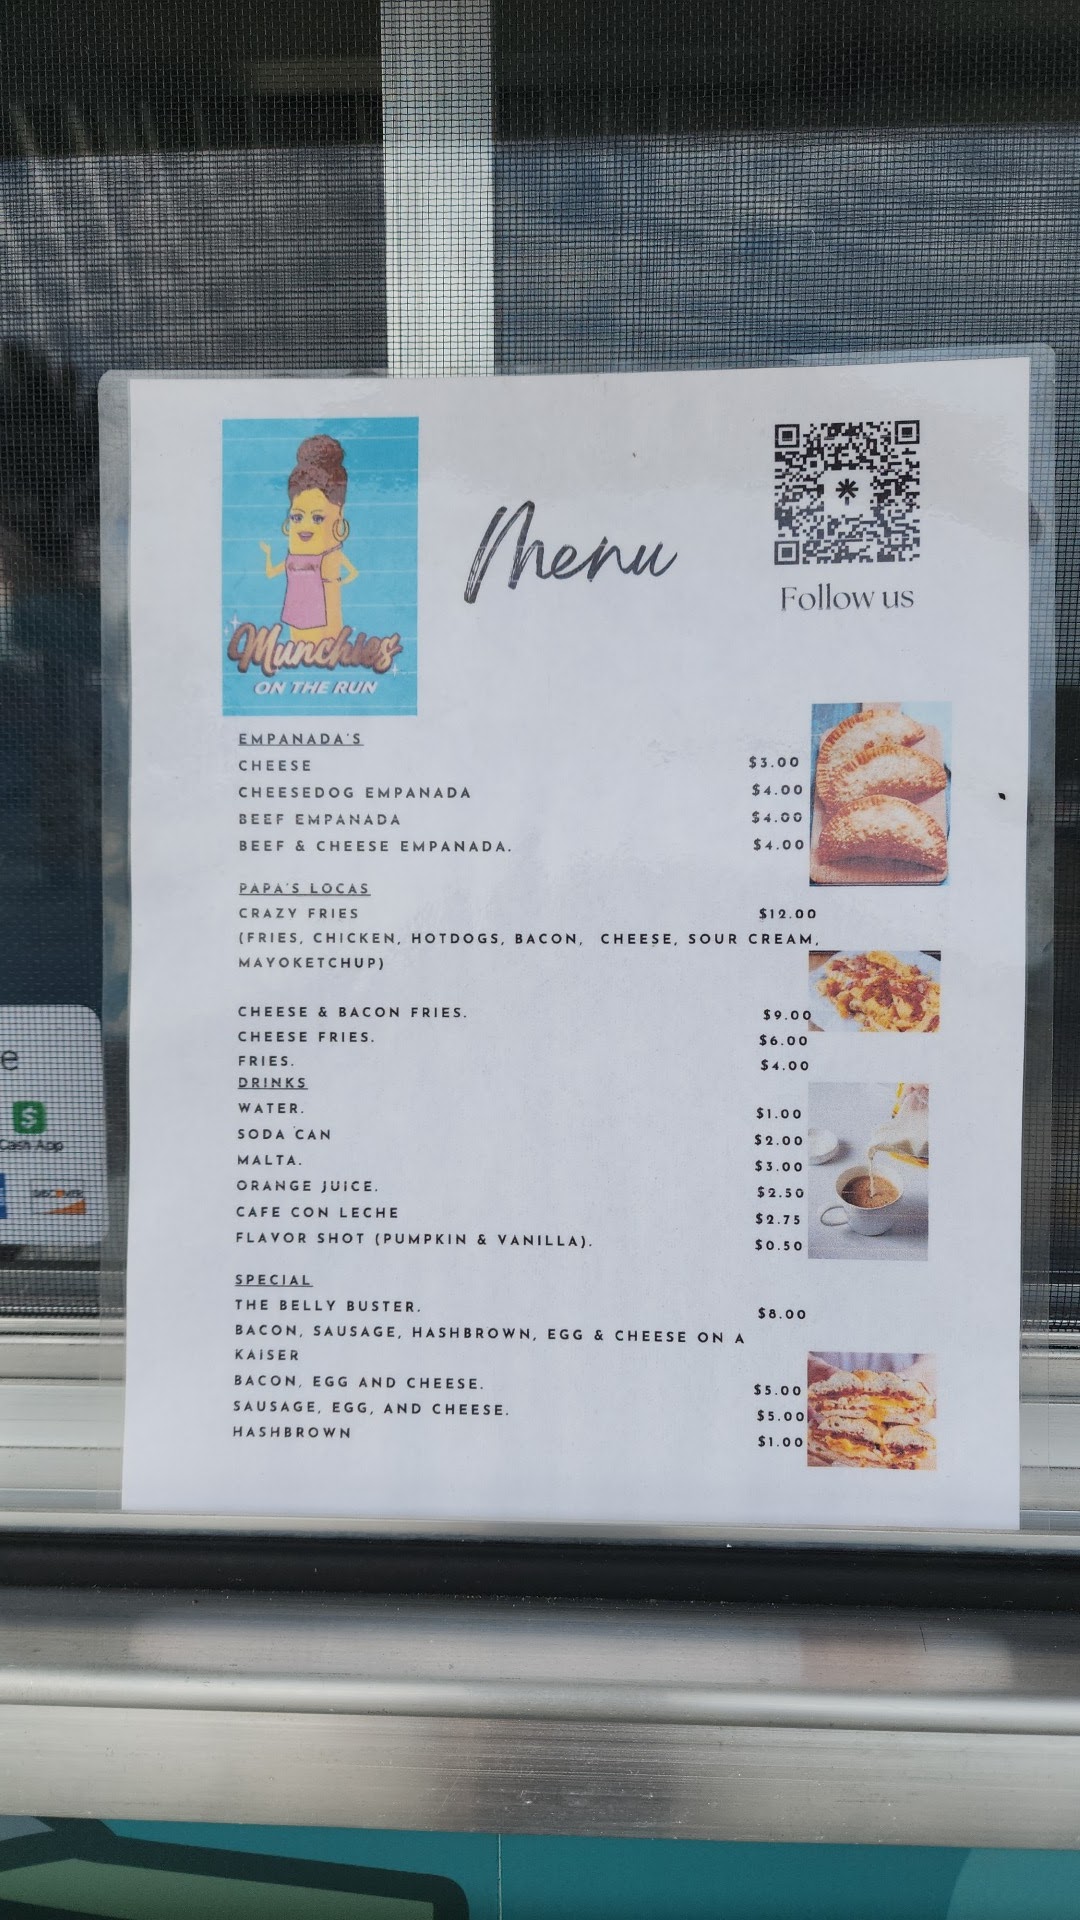 Menu
Follow us
Munchies
ON THE RUN
EMPANADA'S
CHEESE $3.00
CHEESEDOG EMPANADA $4.00
BEEF EMPANADA $4.00
BEEF & CHEESE EMPANADA. $4.00
PAPA'S LOCAS
CRAZY FRIES $12.00
(FRIES, CHICKEN, HOTDOGS, BACON, CHEESE, SOUR CREAM,
MAYOKETCHUP)
CHEESE & BACON FRIES. $9.00
CHEESE FRIES. $6.00
FRIES. $4.00
DRINKS
WATER. $1.00
SODA CAN $2.00
MALTA. $3.00
ORANGE JUICE. $2.50
CAFE CON LECHE $2.75
FLAVOR SHOT (PUMPKIN & VANILLA). $0.50
SPECIAL
THE BELLY BUSTER. $8.00
BACON, SAUSAGE, HASHBROWN, EGG & CHEESE ON A
KAISER
BACON, EGG AND CHEESE. $5.00
SAUSAGE, EGG, AND CHEESE. $5.00
HASHBROWN $1.00
e
$
Cash App
DISCOVER